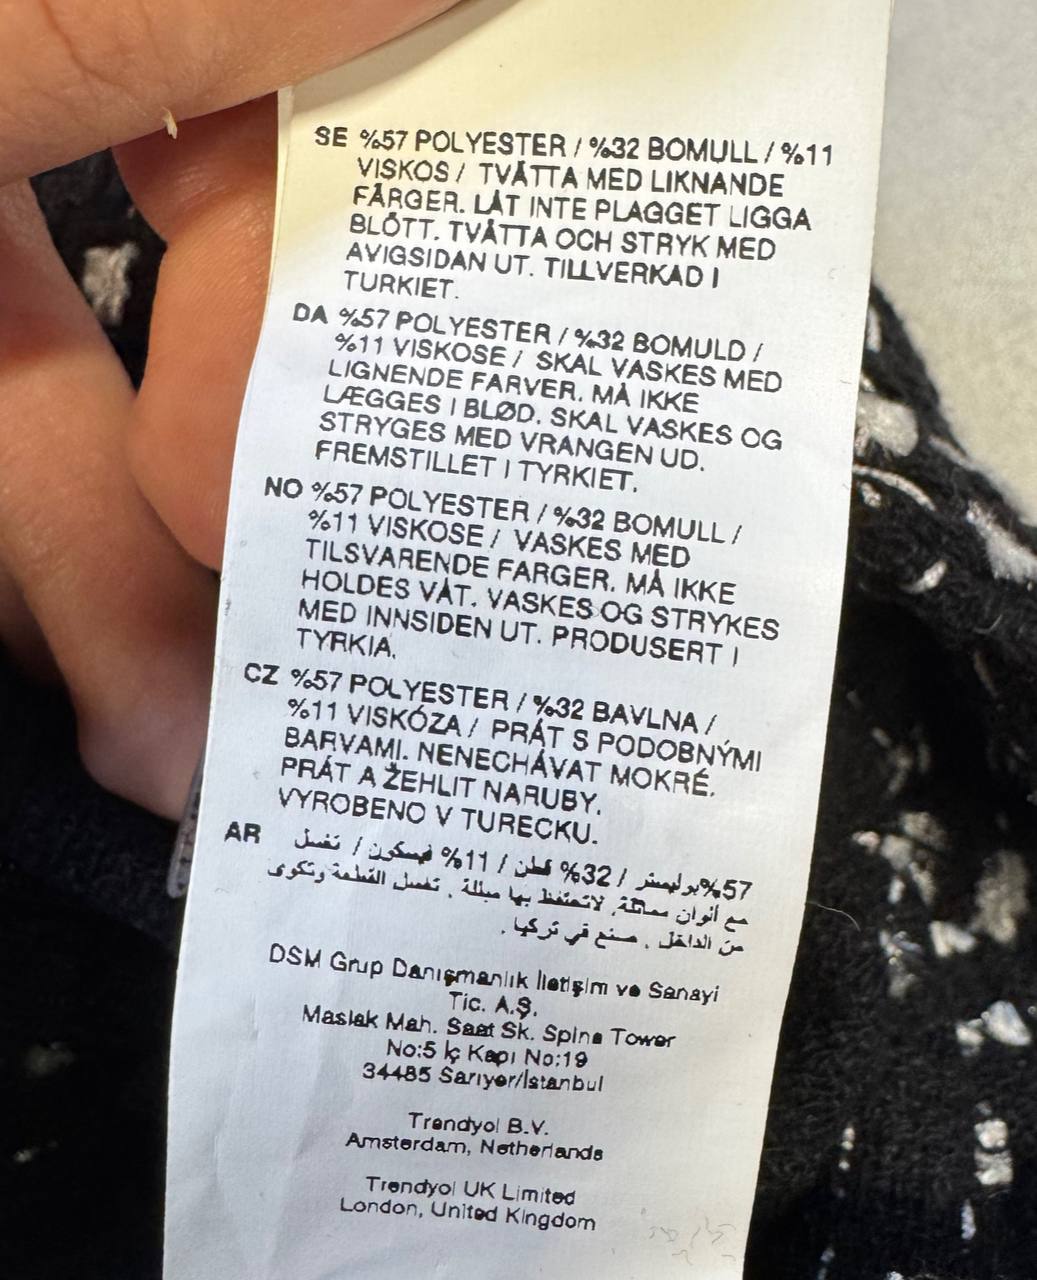 SE %57 POLYESTER / %32 BOMULL / %11
VISKOS / TVÄTTA MED LIKNANDE
FÄRGER. LÅT INTE PLAGGET LIGGA
BLÖTT. TVÄTTA OCH STRYK MED
AVIGSIDAN UT. TILLVERKAD I
TURKIET.
DA %57 POLYESTER / %32 BOMULD /
%11 VISKOSE / SKAL VASKES MED
LIGNENDE FARVER. MÅ IKKE
LÆGGES I BLØD. SKAL VASKES OG
STRYGES MED VRANGEN UD.
FREMSTILLET I TYRKIET.
NO %57 POLYESTER / %32 BOMULL /
%11 VISKOSE / VASKES MED
TILSVARENDE FARGER. MÅ IKKE
HOLDES VÅT. VASKES OG STRYKES
MED INNSIDEN UT. PRODUSERT I
TYRKIA.
CZ %57 POLYESTER / %32 BAVLNA /
%11 VISKÓZA / PRÁT S PODOBNÝMI
BARVAMI. NENECHÁVAT MOKRÉ.
PRÁT A ŽEHLIT NARUBY.
VYROBENO V TURECKU.
AR %57 بوليستر / %32 قطن / %11 فيسكون / تغسل
مع ألوان مماثلة. لاتحتفظ بها مبللة. تغسل القطعة وتكوى
من الداخل. صنع في تركيا.
DSM Grup Danışmanlık İletişim ve Sanayi
Tic. A.Ş.
Maslak Mah. Saat Sk. Spine Tower
No:5 İç Kapı No:19
34485 Sarıyer/İstanbul
Trendyol B.V.
Amsterdam, Netherlands
Trendyol UK Limited
London, United Kingdom